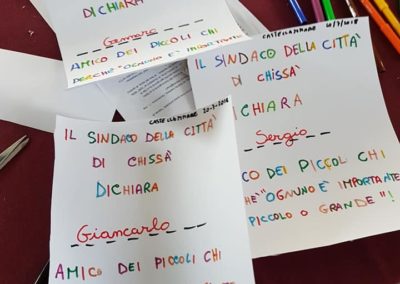 DICHIARA
Gennaro
AMICO DEI PICCOLI CHI
PERCHÉ "OGNUNO È IMPORTANTE
CASTELLAMMARE 20/7/2018
IL SINDACO DELLA CITTÀ
DI CHISSÀ
DICHIARA
Sergio
CO DEI PICCOL CHI
HÈ "OGNUNO È IMPORTANTE
PICCOLO O GRANDE"!
CASTELLAMMARE 20-7-2018
IL SINDACO DELLA CITTÀ
DI CHISSÀ
DICHIARA
Giancarlo
AMICO DEI PICCOLI CHI